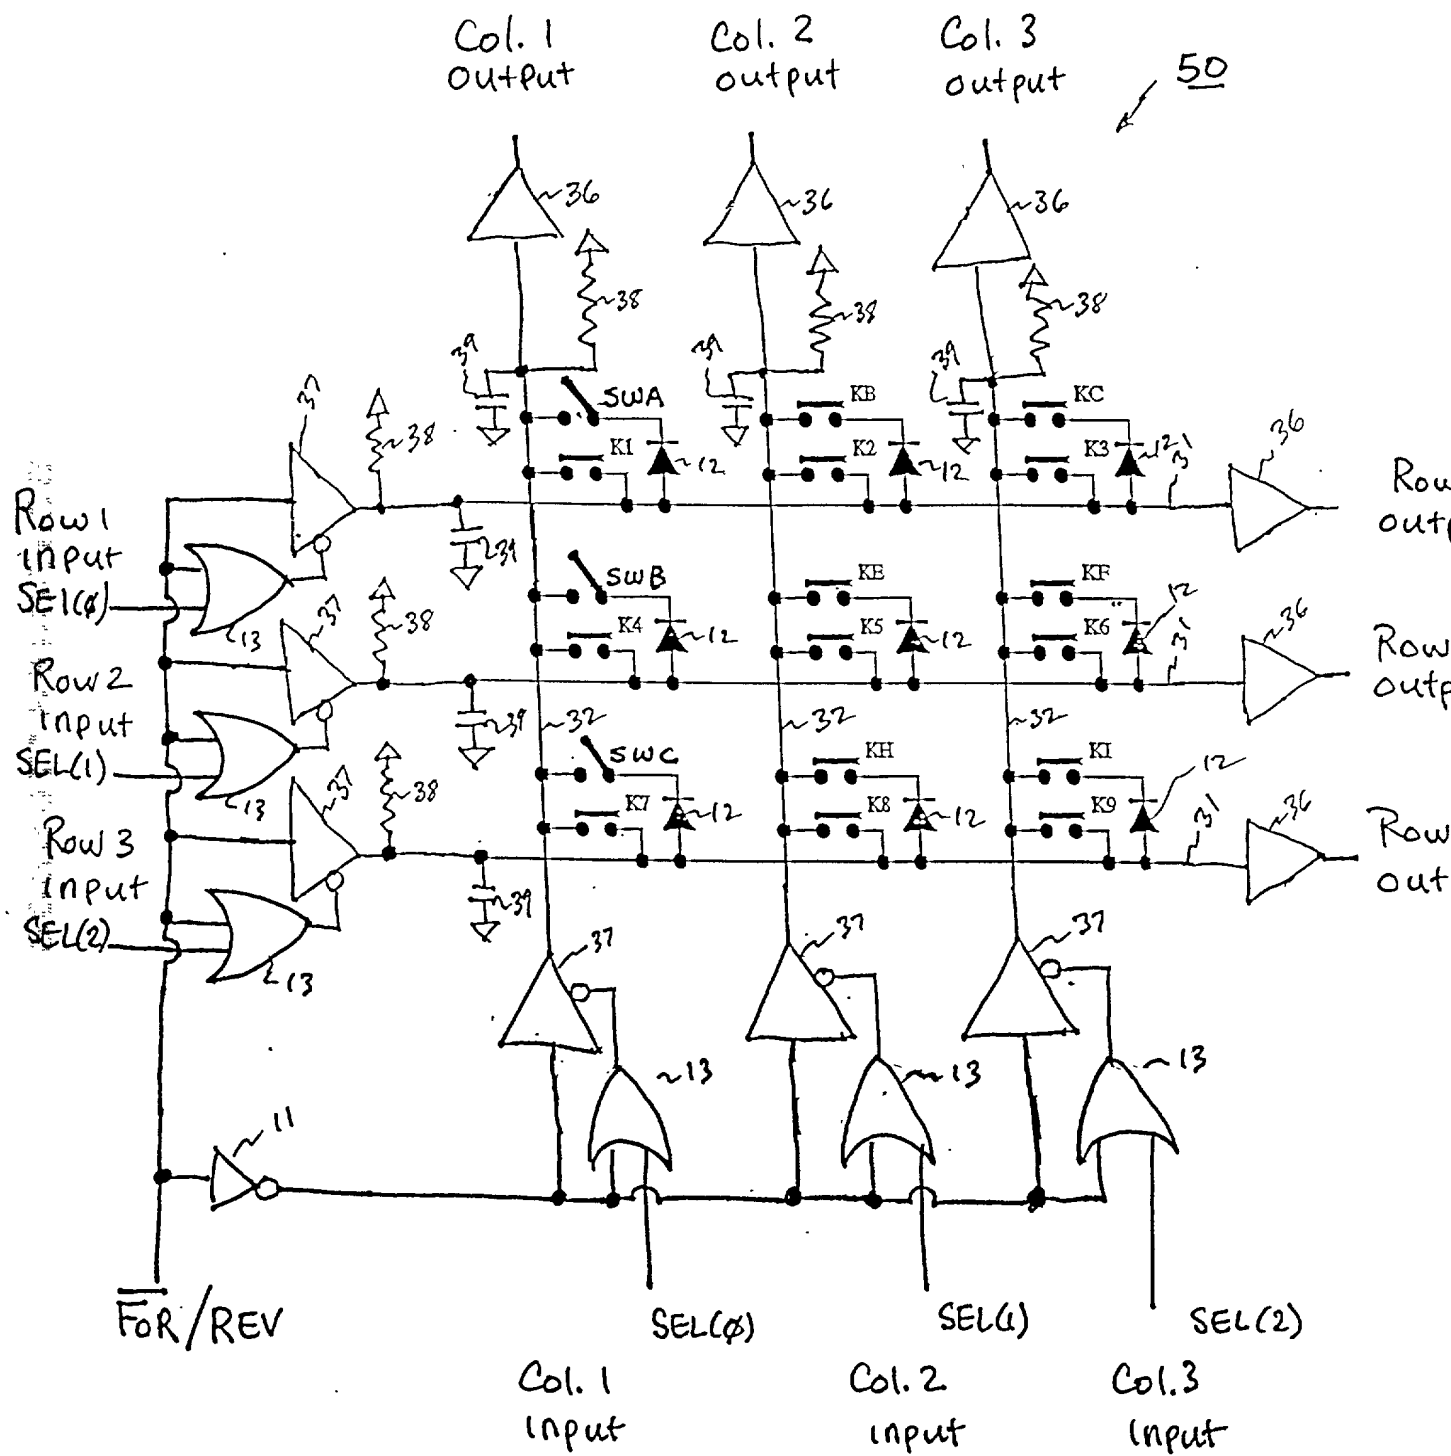 Col. 1
output
Col. 2
output
Col. 3
output
50
36
36
36
38
38
38
39
39
39
37
38
SWA
KB
KC
K1
12
K2
12
K3
12
31
36
Row 1
input
SEL(ø)
Row
outp
39
13
37
38
SWB
KE
KF
12
K4
12
K5
12
K6
31
36
Row 2
input
SEL(1)
Row
outp
39
32
32
32
13
37
38
SWC
KH
KI
12
K7
12
K8
12
K9
31
36
Row 3
input
SEL(2)
Row
out
39
13
37
37
37
13
13
13
11
FOR/REV
SEL(ø)
SEL(1)
SEL(2)
Col. 1
input
Col. 2
input
Col. 3
input